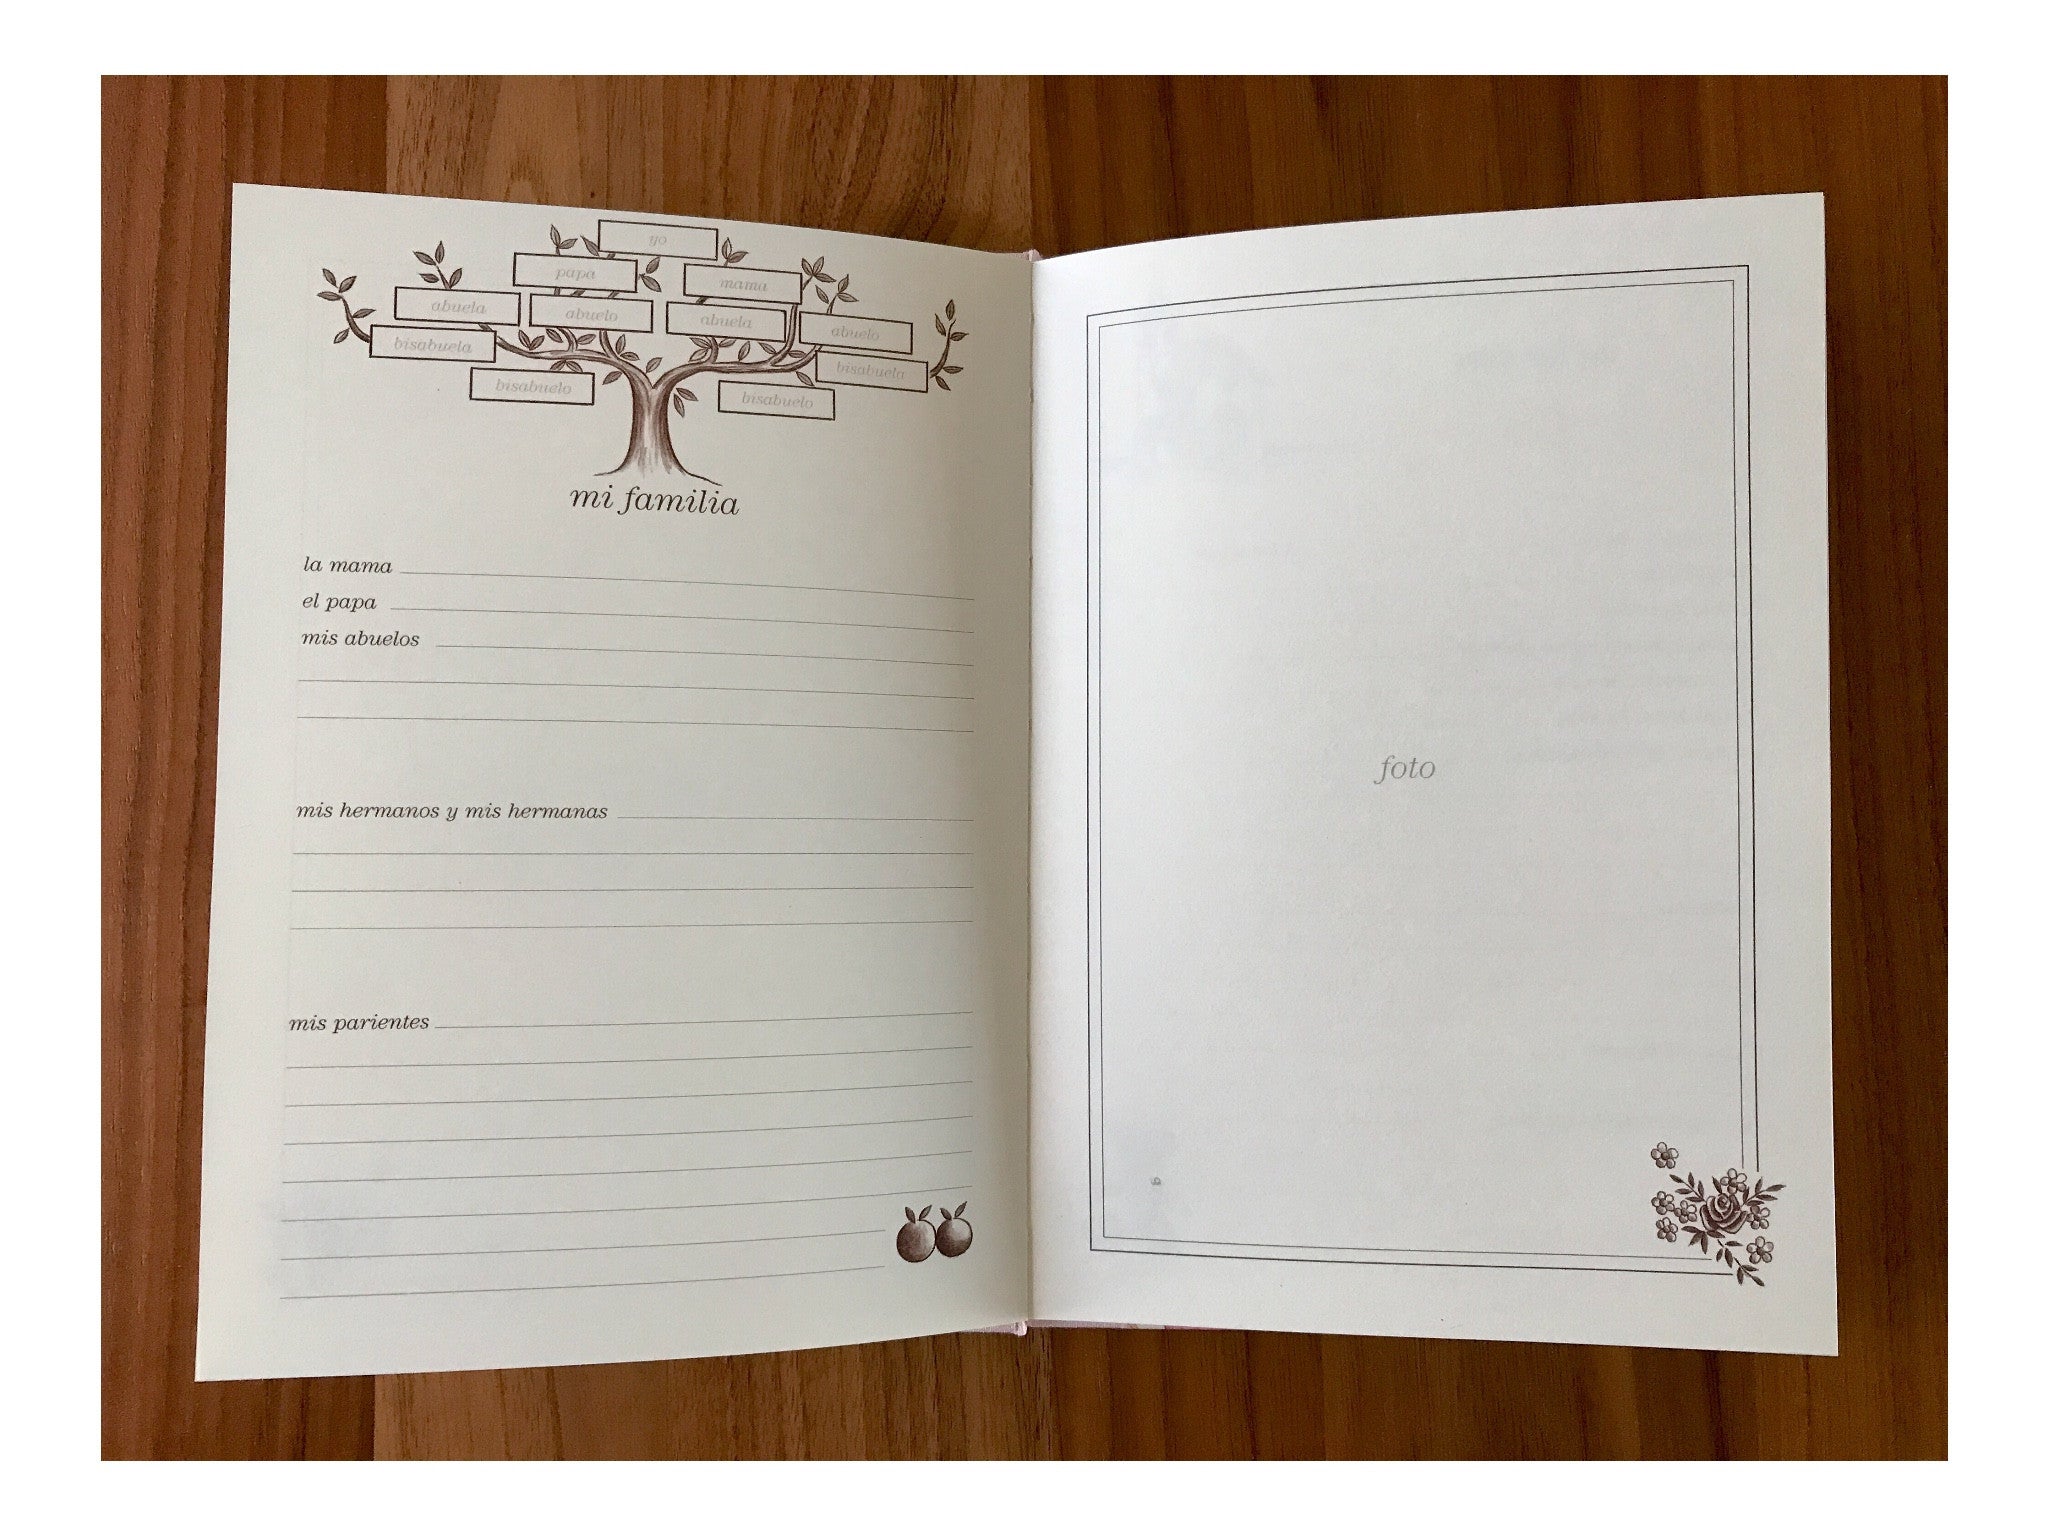 yo
papa
mama
abuela
abuelo
abuela
abuelo
bisabuela
bisabuela
bisabuelo
bisabuelo
mi familia
la mama
el papa
mis abuelos
mis hermanos y mis hermanas
mis parientes
foto